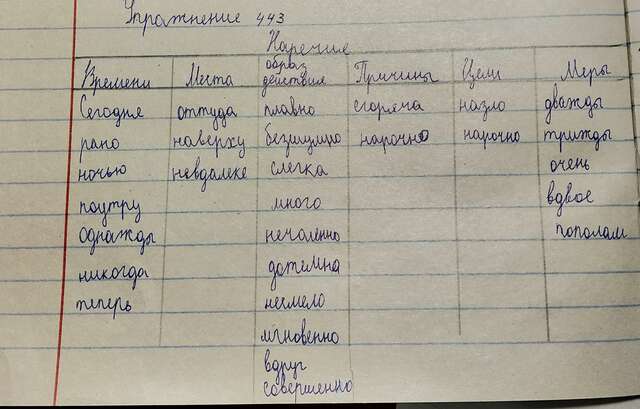 Упражнение 443
Наречия
Времени Места образ действия Причины Цели Меры
Сегодня оттуда плавно сгоряча назло дважды
рано наверху безшумно нарочно нарочно трижды
ночью невдалеке слегка очень
поутру много вдвое
однажды нечаенно пополам
никогда дотемна
теперь несмело
мгновенно
вдруг
совершенно